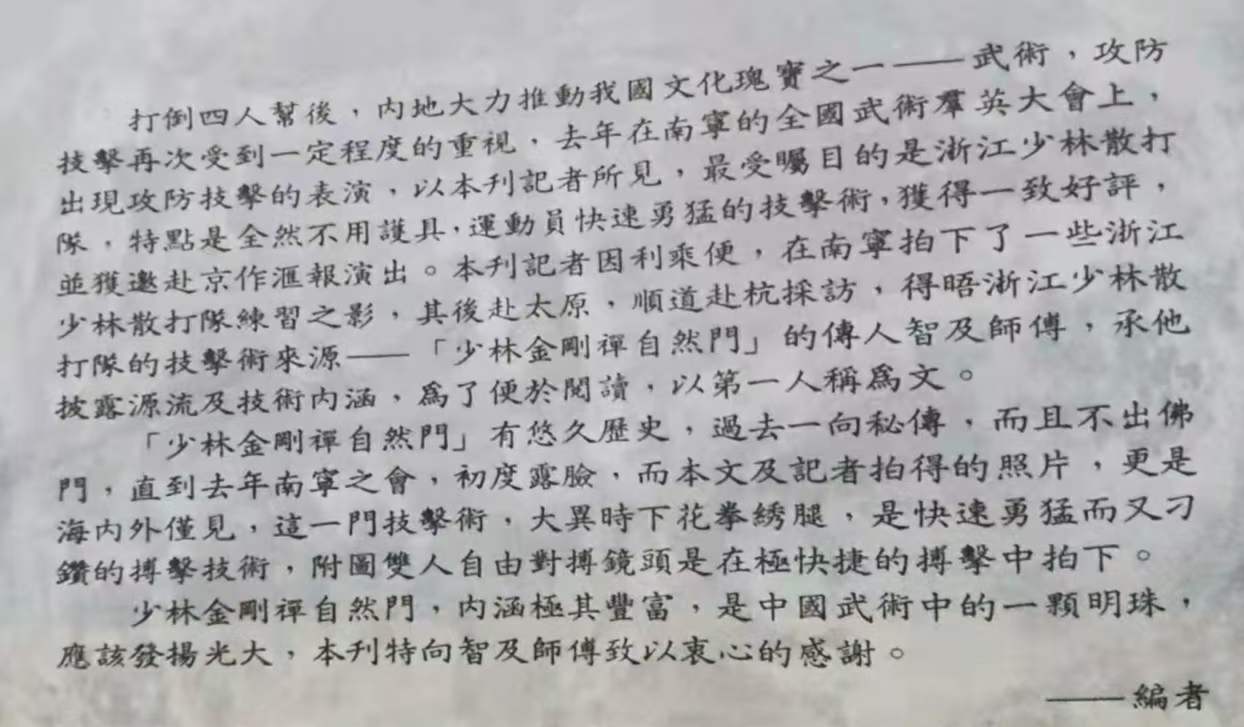 打倒四人幫後，內地大力推動我國文化瑰寶之一——武術，攻防
技擊再次受到一定程度的重視，去年在南寧的全國武術羣英大會上，
出現攻防技擊的表演，以本刊記者所見，最受矚目的是浙江少林散打
隊，特點是全然不用護具，運動員快速勇猛的技擊術，獲得一致好評，
並獲邀赴京作滙報演出。本刊記者因利乘便，在南寧拍下了一些浙江
少林散打隊練習之影，其後赴太原，順道赴杭採訪，得晤浙江少林散
打隊的技擊術來源——「少林金剛禪自然門」的傳人智及師傅，承他
披露源流及技術內涵，爲了便於閱讀，以第一人稱爲文。
「少林金剛禪自然門」有悠久歷史，過去一向秘傳，而且不出佛
門，直到去年南寧之會，初度露臉，而本文及記者拍得的照片，更是
海內外僅見，這一門技擊術，大異時下花拳綉腿，是快速勇猛而又刁
鑽的搏擊技術，附圖雙人自由對搏鏡頭是在極快捷的搏擊中拍下。
少林金剛禪自然門，內涵極其豐富，是中國武術中的一顆明珠，
應該發揚光大，本刊特向智及師傅致以衷心的感謝。
——編者